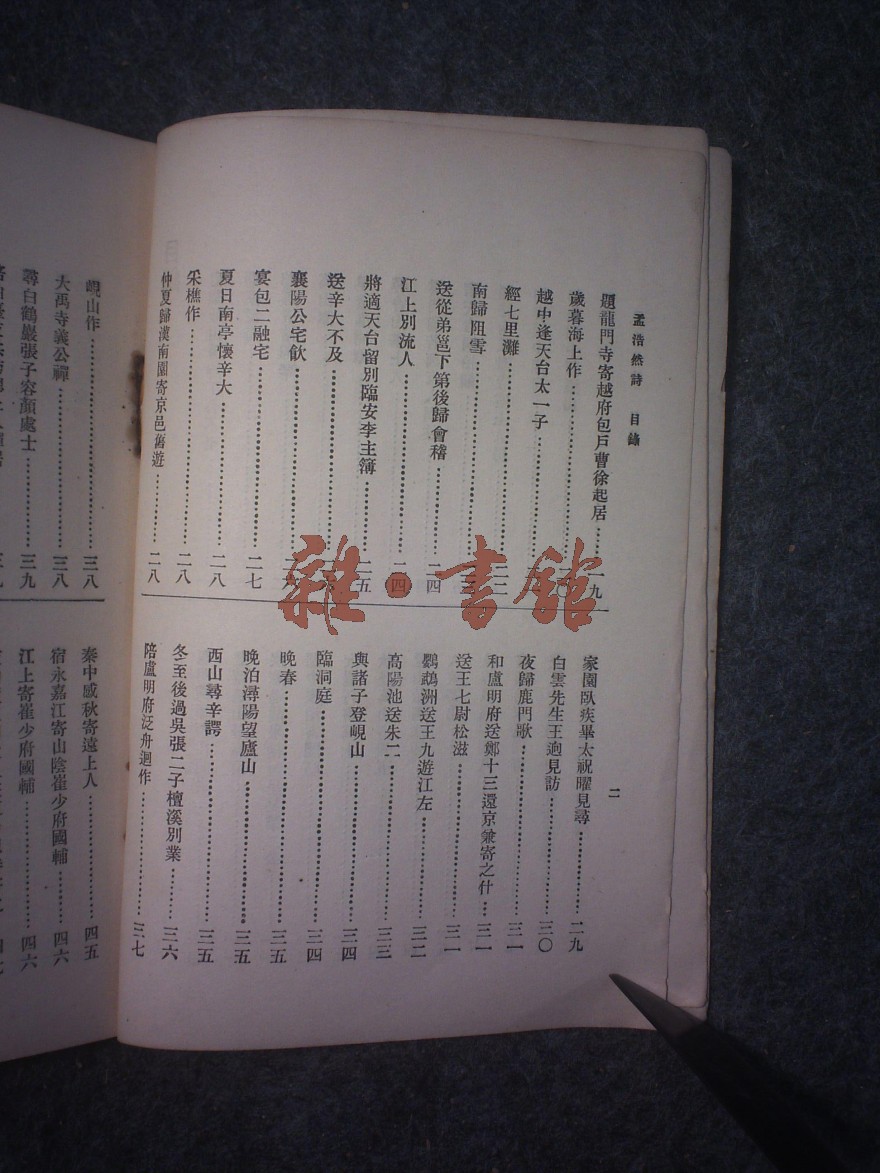 孟浩然詩 目錄
二
題龍門寺寄越府包戶曹徐起居……一九
歲暮海上作……
越中逢天台太一子……
經七里灘……
南歸阻雪……
送從弟邕下第後歸會稽……二四
江上別流人……二四
將適天台留別臨安李主簿……二五
送辛大不及……
襄陽公宅飲……
宴包二融宅……二七
夏日南亭懷辛大……二八
采樵作……二八
仲夏歸漢南園寄京邑舊遊……二八
家園臥疾畢太祝曜見尋……二九
白雲先生王迥見訪……三〇
夜歸鹿門歌……三一
和盧明府送鄭十三還京兼寄之什…三一
送王七尉松滋……三一
鸚鵡洲送王九遊江左……三二
高陽池送朱二……三三
與諸子登峴山……三四
臨洞庭……三四
晚春……三五
晚泊潯陽望廬山……三五
西山尋辛諤……三五
冬至後過吳張二子檀溪別業……三六
陪盧明府泛舟迴作……三七
峴山作……三八
大禹寺義公禪……三八
尋白鶴巖張子容顏處士……三九
秦中感秋寄遠上人……四五
宿永嘉江寄山陰崔少府國輔……四六
江上寄崔少府國輔……四六
雜·書館